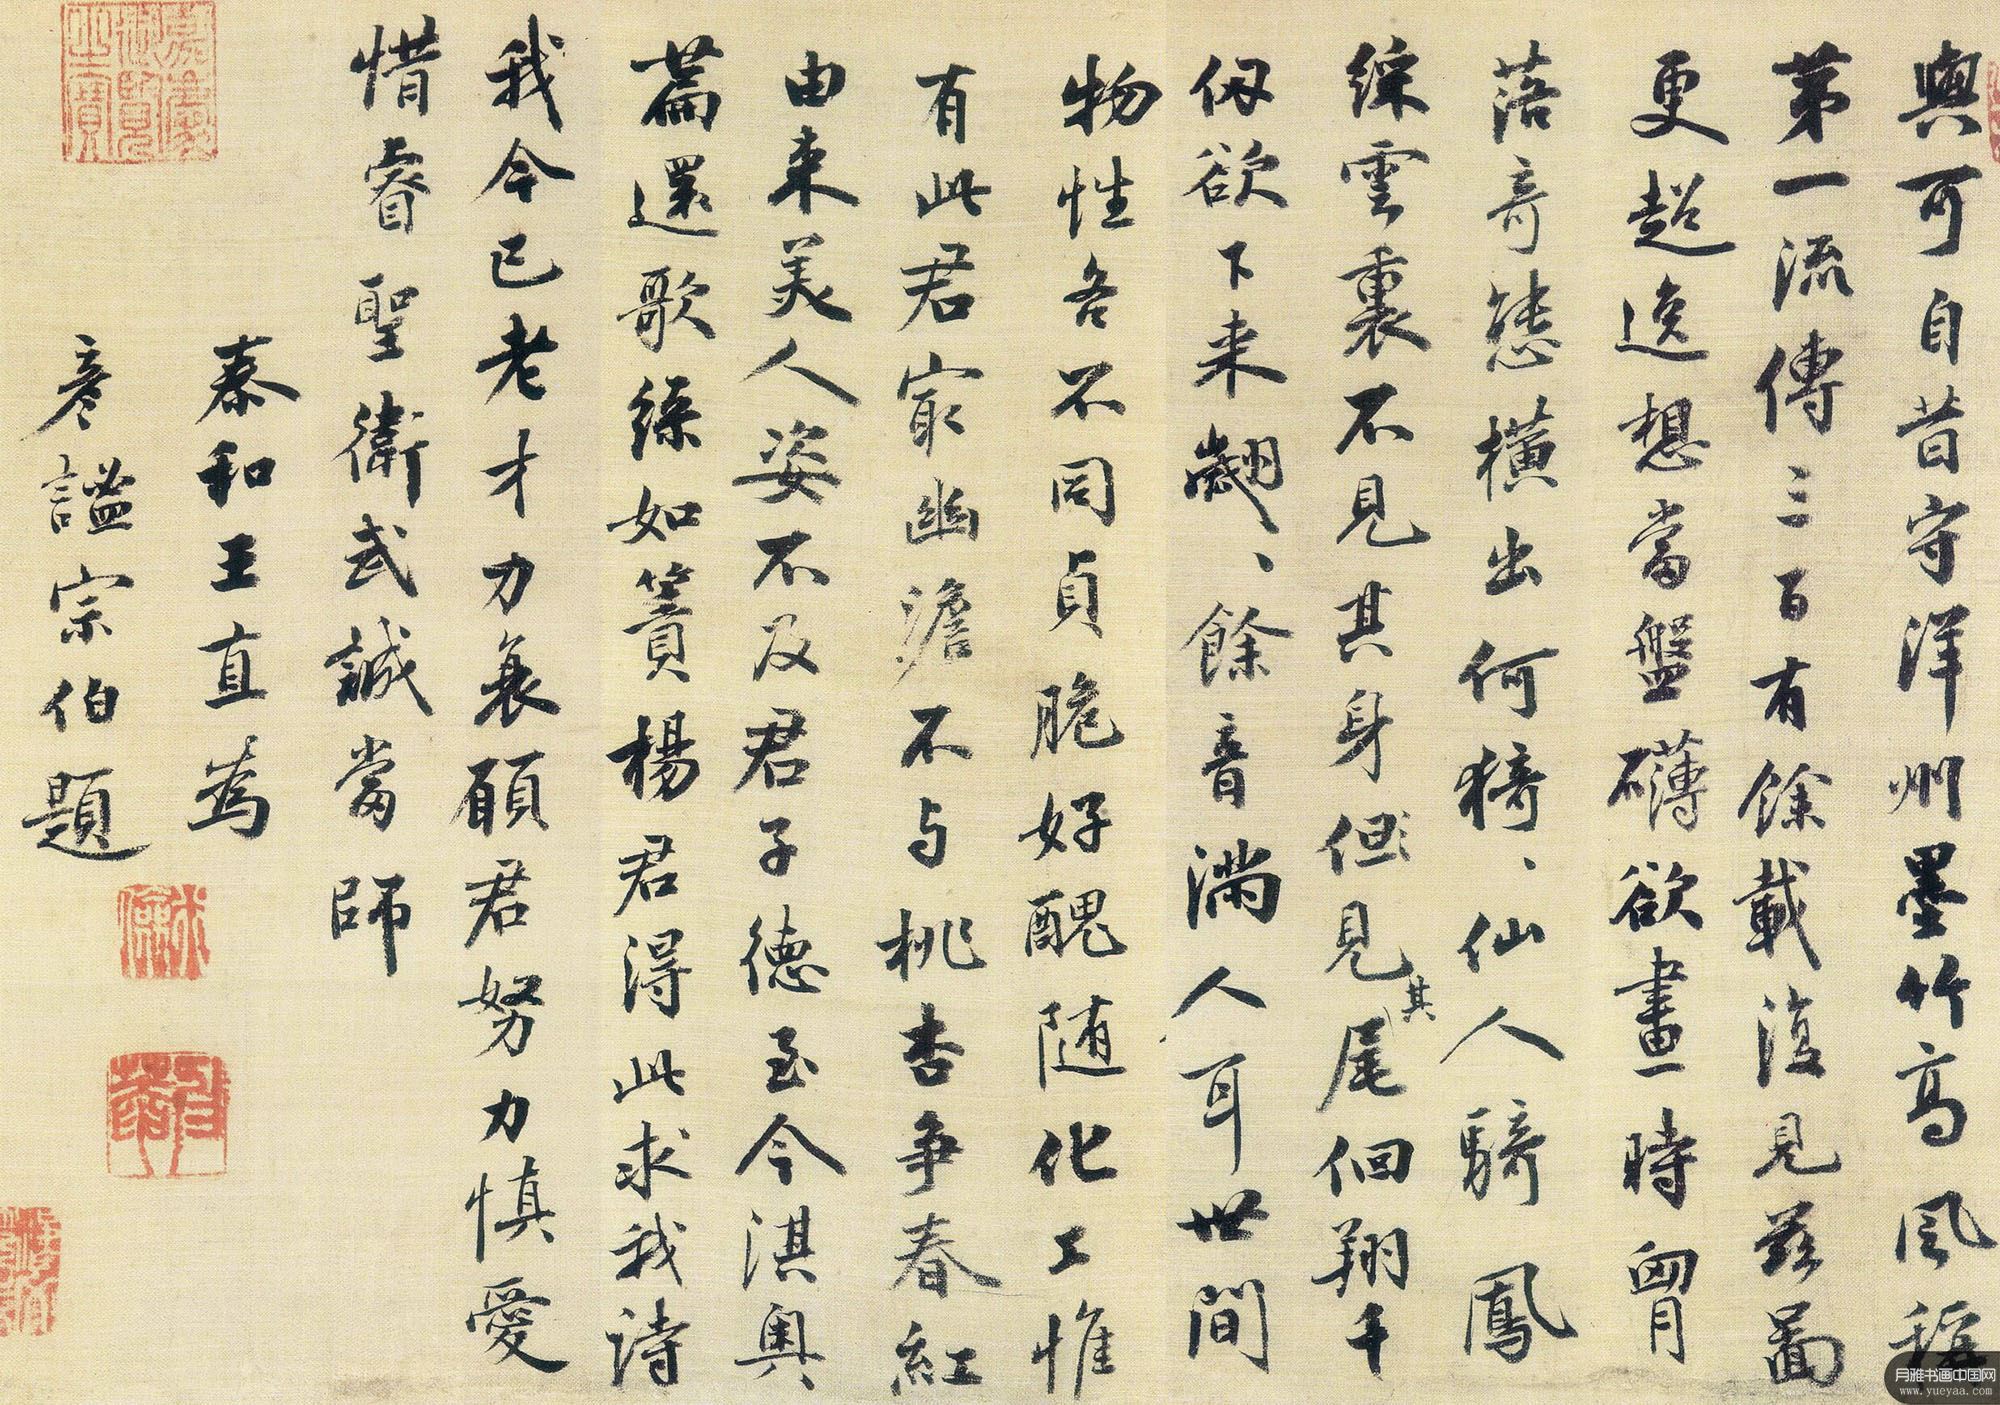 與可自昔守洋州墨竹高風稱
第一流傳三百有餘載復見茲圖
更超逸想當盤礴欲畫時胷
落奇態橫出何猗、仙人騎鳳
綵雲裏不見其身但見其尾徊翔千
仭欲下来翽、餘音滿人耳世間
物性各不同貞脆好醜随化工惟
有此君寂幽澹不与桃杏爭春紅
由来美人姿不及君子德至今淇奥
篇還歌綠如簀楊君得此求我詩
我今已老才力衰願君努力慎愛
惜睿聖衛武誠當師
泰和王直為
彥謐宗伯題
月雅书画中国网
www.yueyaa.com